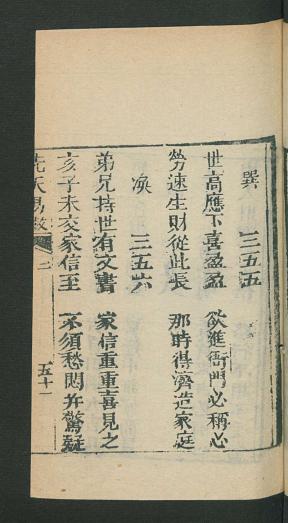 巽 三五五
世高應下喜盈盈 欲進衙門必稱心
勞速生財從此長 那時得濟造家庭
渙 三五六
弟兄持世有文書 家信重重喜見之
亥子未交家信至 不須愁悶并驚疑
先天易數 二 五十一